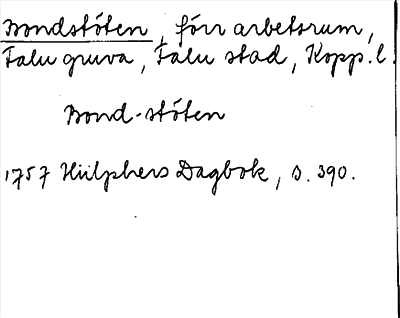 Bondstöten, förr arbetsrum,
Falu gruva, Falu stad, Kopp.l.
Bond-stöten
1757 Hülphers Dagbok, s. 390.